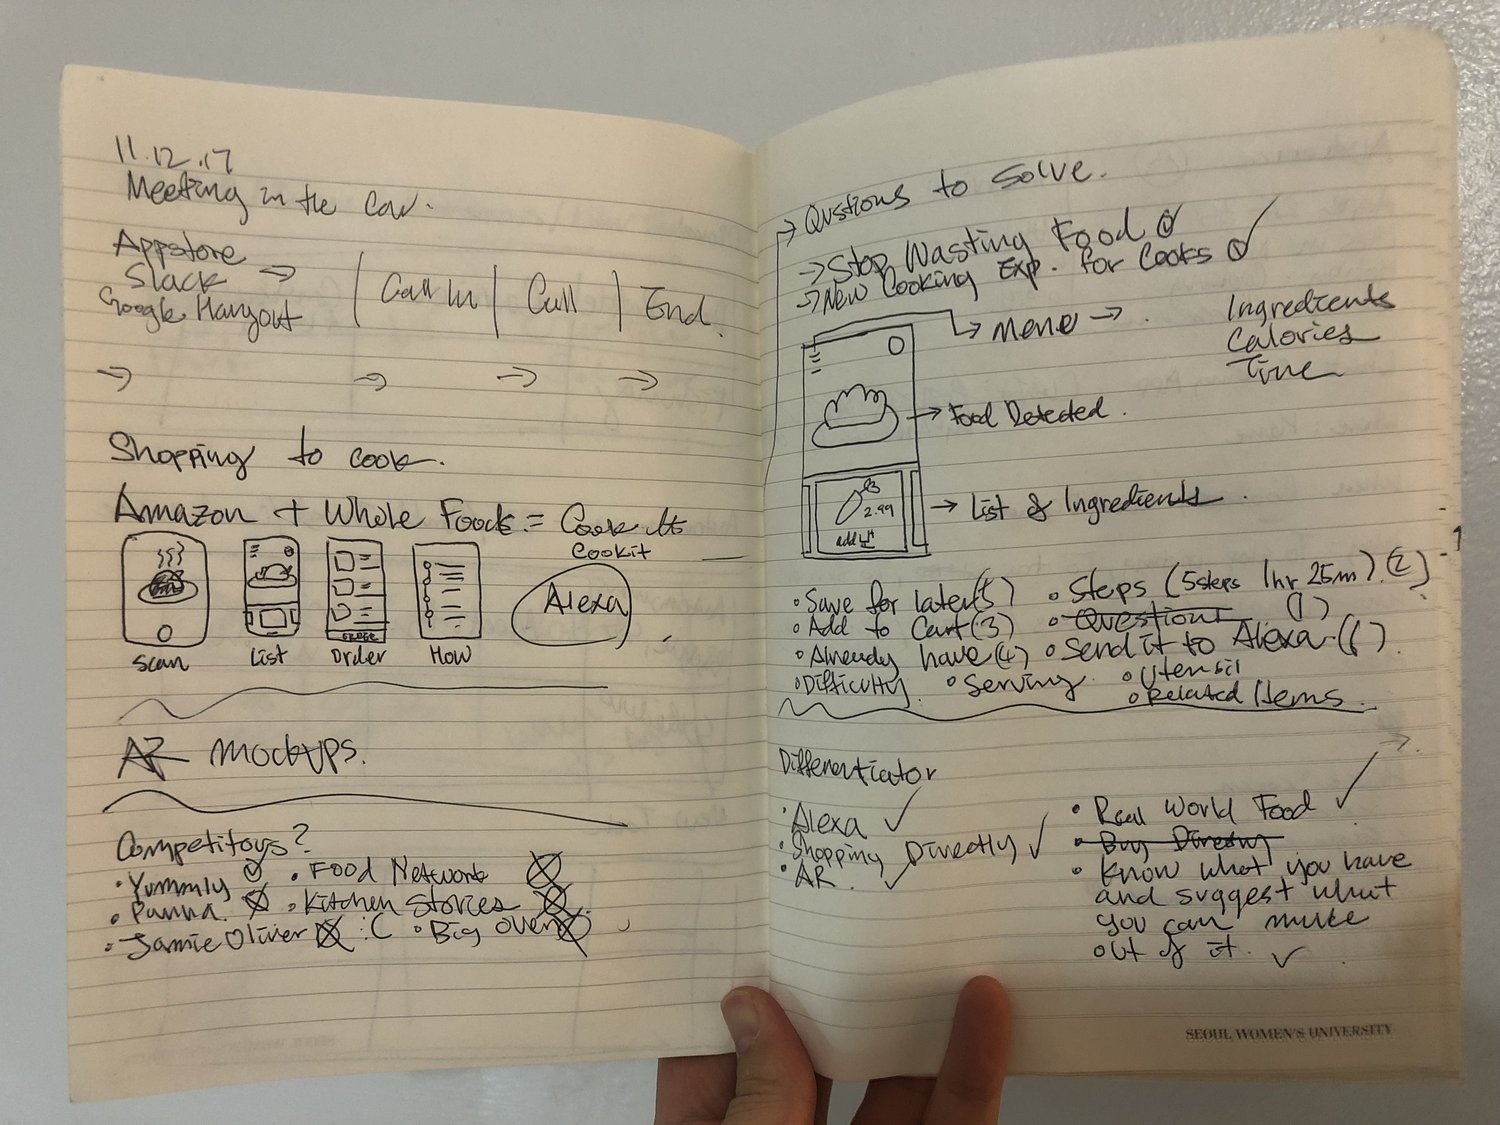 11.12.17
Meeting in the Car.
Appstore
Slack →
Google Hangout
Call In | Call | End.
→ → → →
Shopping to cook.
Amazon + Whole Foods = Cook It
Cookit
Alexa
ORDER
Scan List Order How
AR mockups.
Competitors?
• Yummly • Food Network
• Panna. • Kitchen Stories
• Jamie Oliver :C • Big Oven
→ Qustions to solve.
→ Stop Wasting Food
→ New Cooking Exp. for Cooks
→ Menu →
Ingredients
Calories
Time
→ Food Detected.
2.99
add
→ List of Ingredients.
• Save for later(5) • Steps (5steps 1hr 25m).(2)
• Add to Cart(3) • Questions (1)
• Already have(4) • Send it to Alexa.(6)
• Difficulty. • Serving. • Utensil
• Related Items.
Differenticator
• Alexa ✓
• Shopping Directly ✓
• AR. ✓
• Real World Food ✓
• Buy Directly
• Know what you have
and suggest what
you can make
out of it. ✓
SEOUL WOMEN'S UNIVERSITY